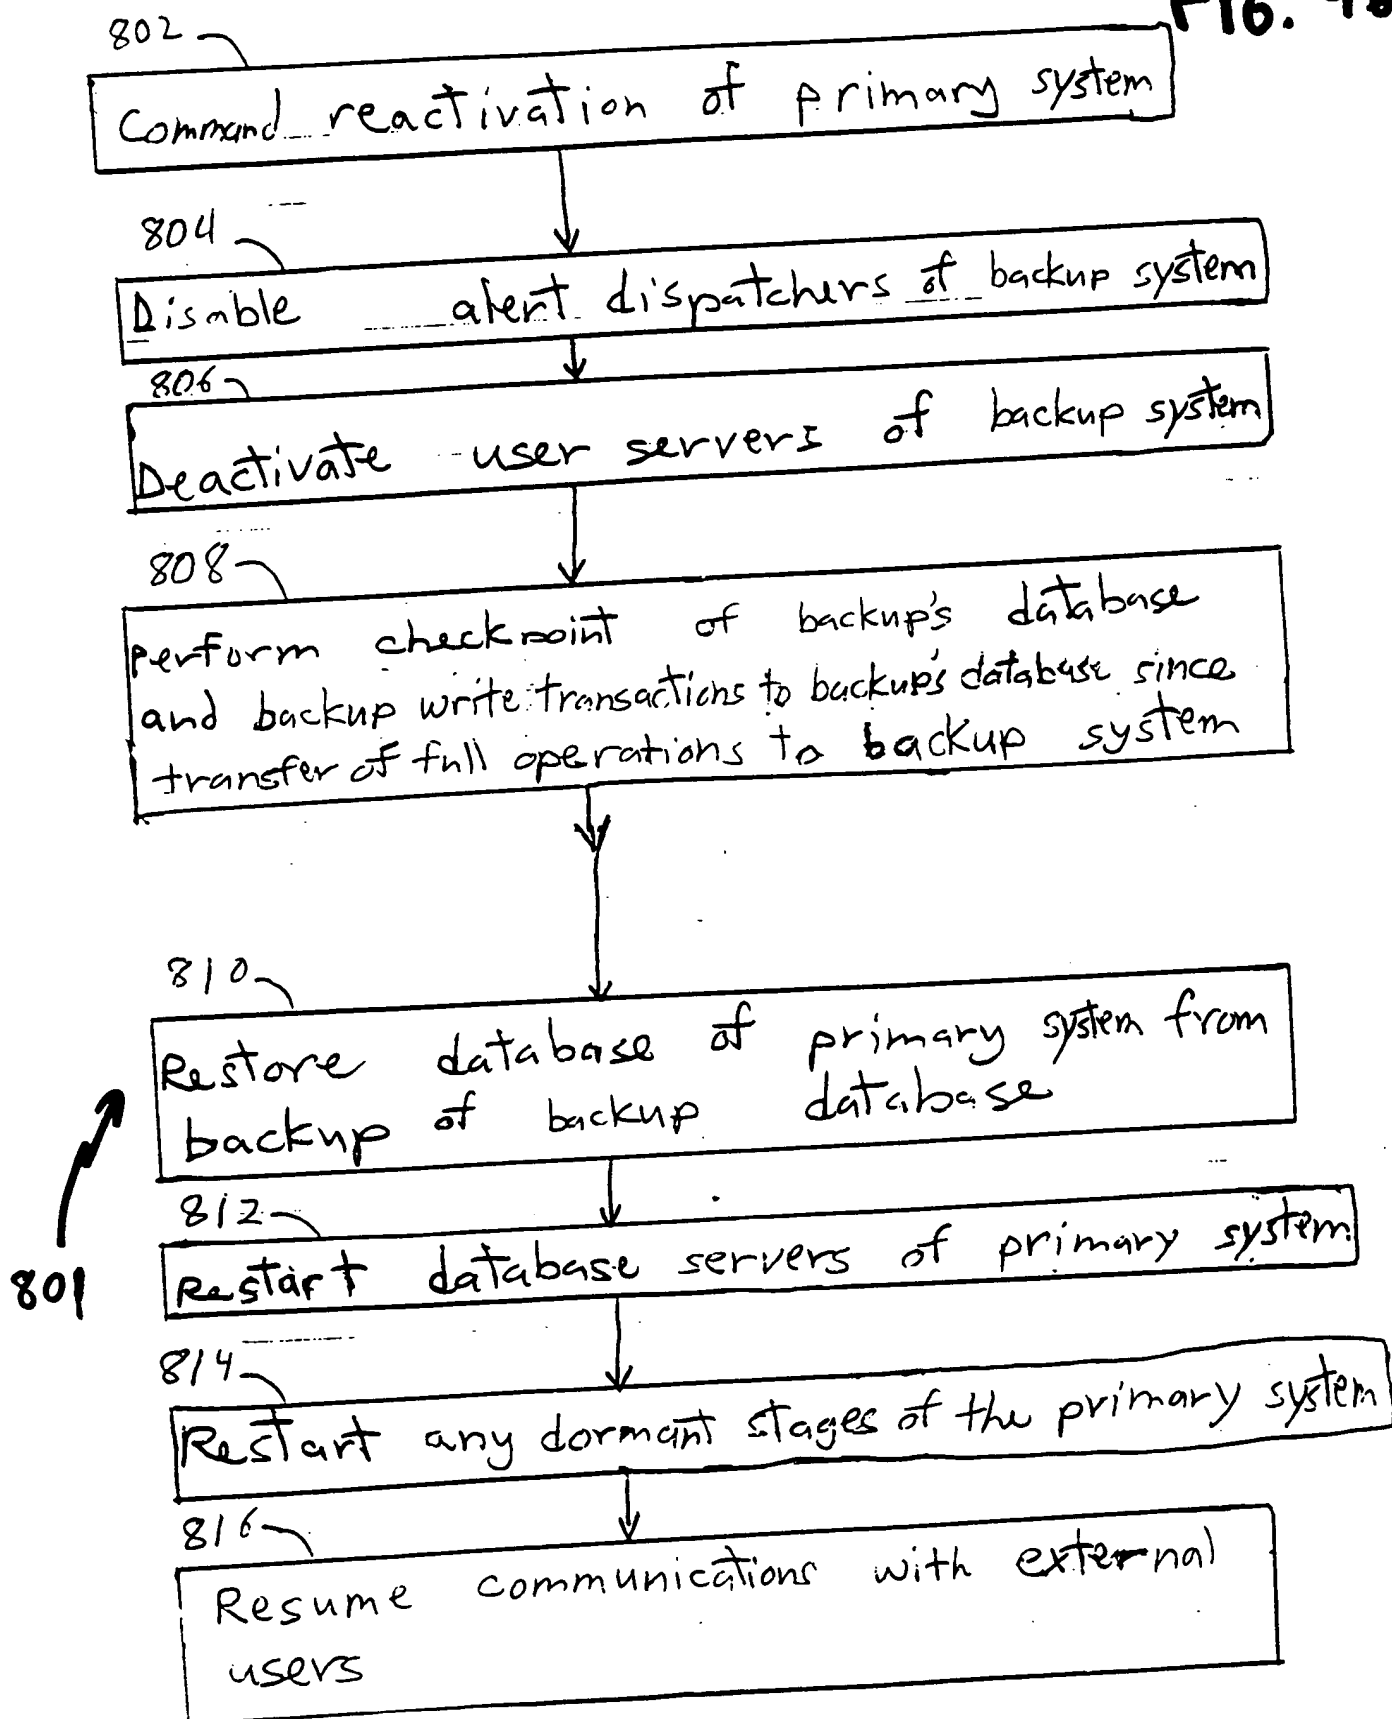 FIG.
802
Command reactivation of primary system
804
Disable alert dispatchers of backup system
806
Deactivate user servers of backup system
808
perform checkpoint of backup's database
and backup write transactions to backup's database since
transfer of full operations to backup system
810
Restore database of primary system from
backup of backup database
801
812
Restart database servers of primary system
814
Restart any dormant stages of the primary system
816
Resume communications with external
users